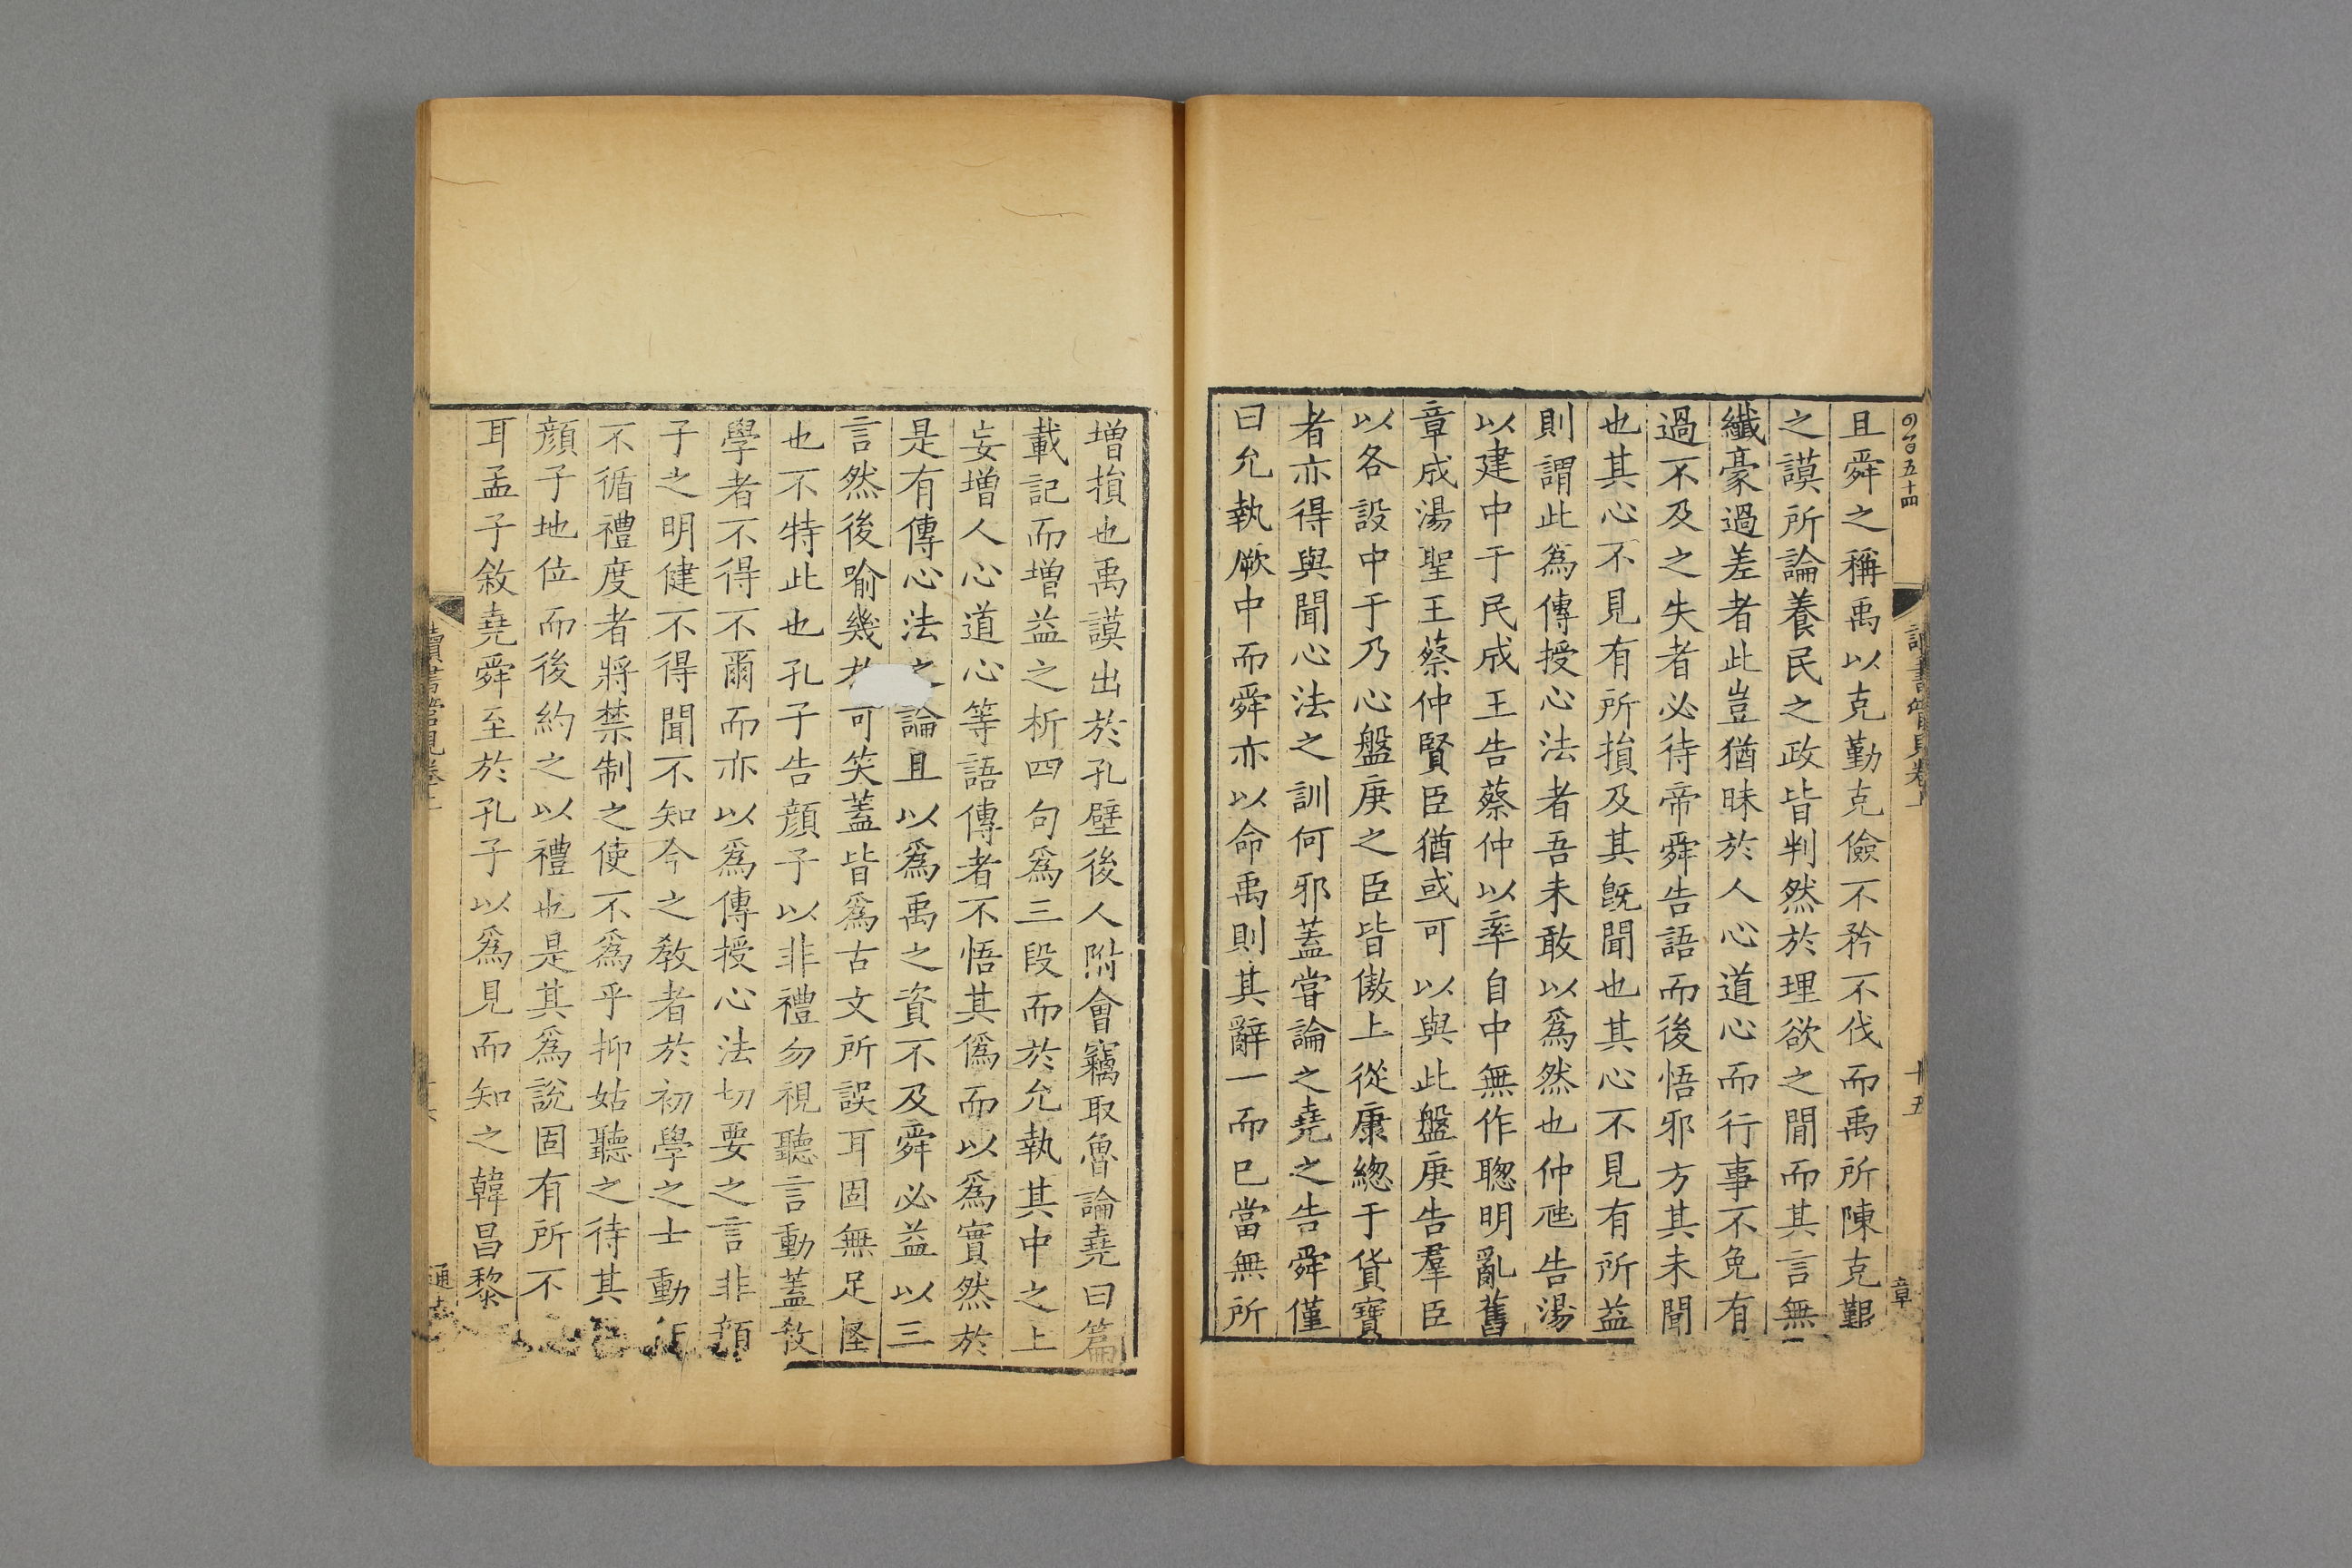 四百五十四
讀書管見卷上
十五
章
且舜之稱禹以克勤克儉不矜不伐而禹所陳克艱
之謨所論養民之政皆判然於理欲之間而其言無
纖豪過差者此豈猶昧於人心道心而行事不免有
過不及之失者必待帝舜告語而後悟邪方其未聞
也其心不見有所損及其旣聞也其心不見有所益
則謂此爲傳授心法者吾未敢以爲然也仲虺告湯
以建中于民成王告蔡仲以率自中無作聰明亂舊
章成湯聖王蔡仲賢臣猶或可以與此盤庚告羣臣
以各設中于乃心盤庚之臣皆傲上從康緫于貨寶
者亦得與聞心法之訓何邪蓋嘗論之堯之告舜僅
曰允執厥中而舜亦以命禹則其辭一而已當無所
增損也禹謨出於孔壁後人附會竊取魯論堯曰篇
載記而增益之析四句爲三段而於允執其中之上
妄增人心道心等語傳者不悟其僞而以爲實然於
是有傳心法之論且以爲禹之資不及舜必益以三
言然後喻幾於可笑蓋皆爲古文所誤耳固無足怪
也不特此也孔子告顔子以非禮勿視聽言動蓋敎
學者不得不爾而亦以爲傳授心法切要之言非顔
子之明健不得聞不知今之敎者於初學之士動
不循禮度者將禁制之使不爲乎抑姑聽之待其
顔子地位而後約之以禮也是其爲說固有所不
耳孟子敘堯舜至於孔子以爲見而知之韓昌黎
讀書管見卷上
通志